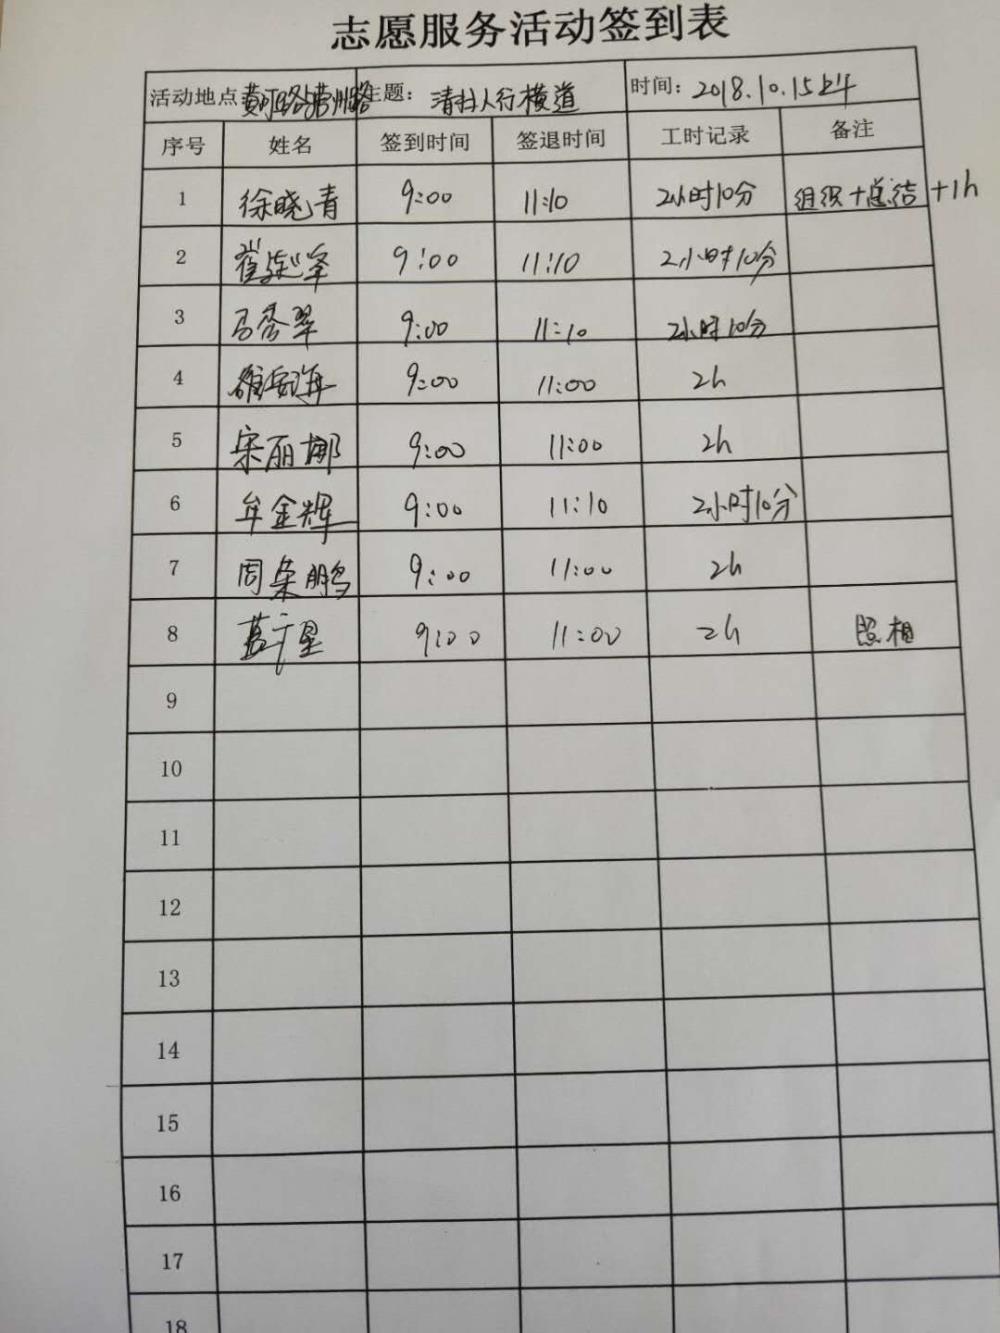 志愿服务活动签到表
活动地点: 黄河路 主题: 清扫人行横道 时间: 2018.10.15上午
序号 姓名 签到时间 签退时间 工时记录 备注
1 徐晓青 9:00 11:10 2小时10分 组织+总结+1h
2 9:00 11:10 2小时10分
3 马秀翠 9:00 11:10 2小时10分
4 9:00 11:00 2h
5 宋丽娜 9:00 11:00 2h
6 牟金辉 9:00 11:10 2小时10分
7 周荣鹏 9:00 11:00 2h
8 9:00 11:00 2h 照相
9
10
11
12
13
14
15
16
17
18